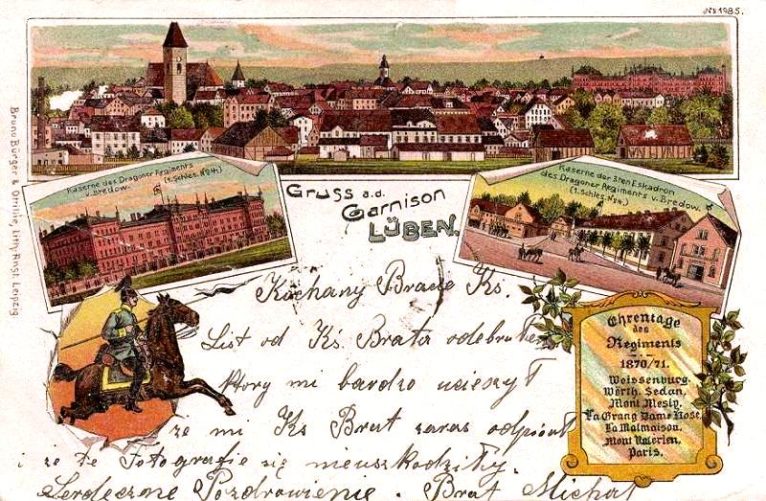 No 1985.
Bruno Bürger & Ottillie, Lith. Anst. Leipzig
Kaserne des Dragoner Regiments
v. Bredow.
(1. Schles. No 4.)
Gruss a.d.
Garnison
LÜBEN.
Kaserne der 5ten Eskadron
des Dragoner Regiments v. Bredow.
(1. Schles. No 4.)
Kochany Bracie Ks.
List od Ks Brata odebrałem
ktory mi bardzo ucieszył
ze mi Ks Brat zaras odpisał
i ze te Fotografie się nieuszkodziły.
Serdeczne Pozdrowienie. Brat Michał
Ehrentage
des
Regiments
1870/71.
Weissenburg.
Wörth. Sedan,
Mont Mesly,
La Grang Dame Rose,
La Malmaison,
Mont Valerien,
Paris.